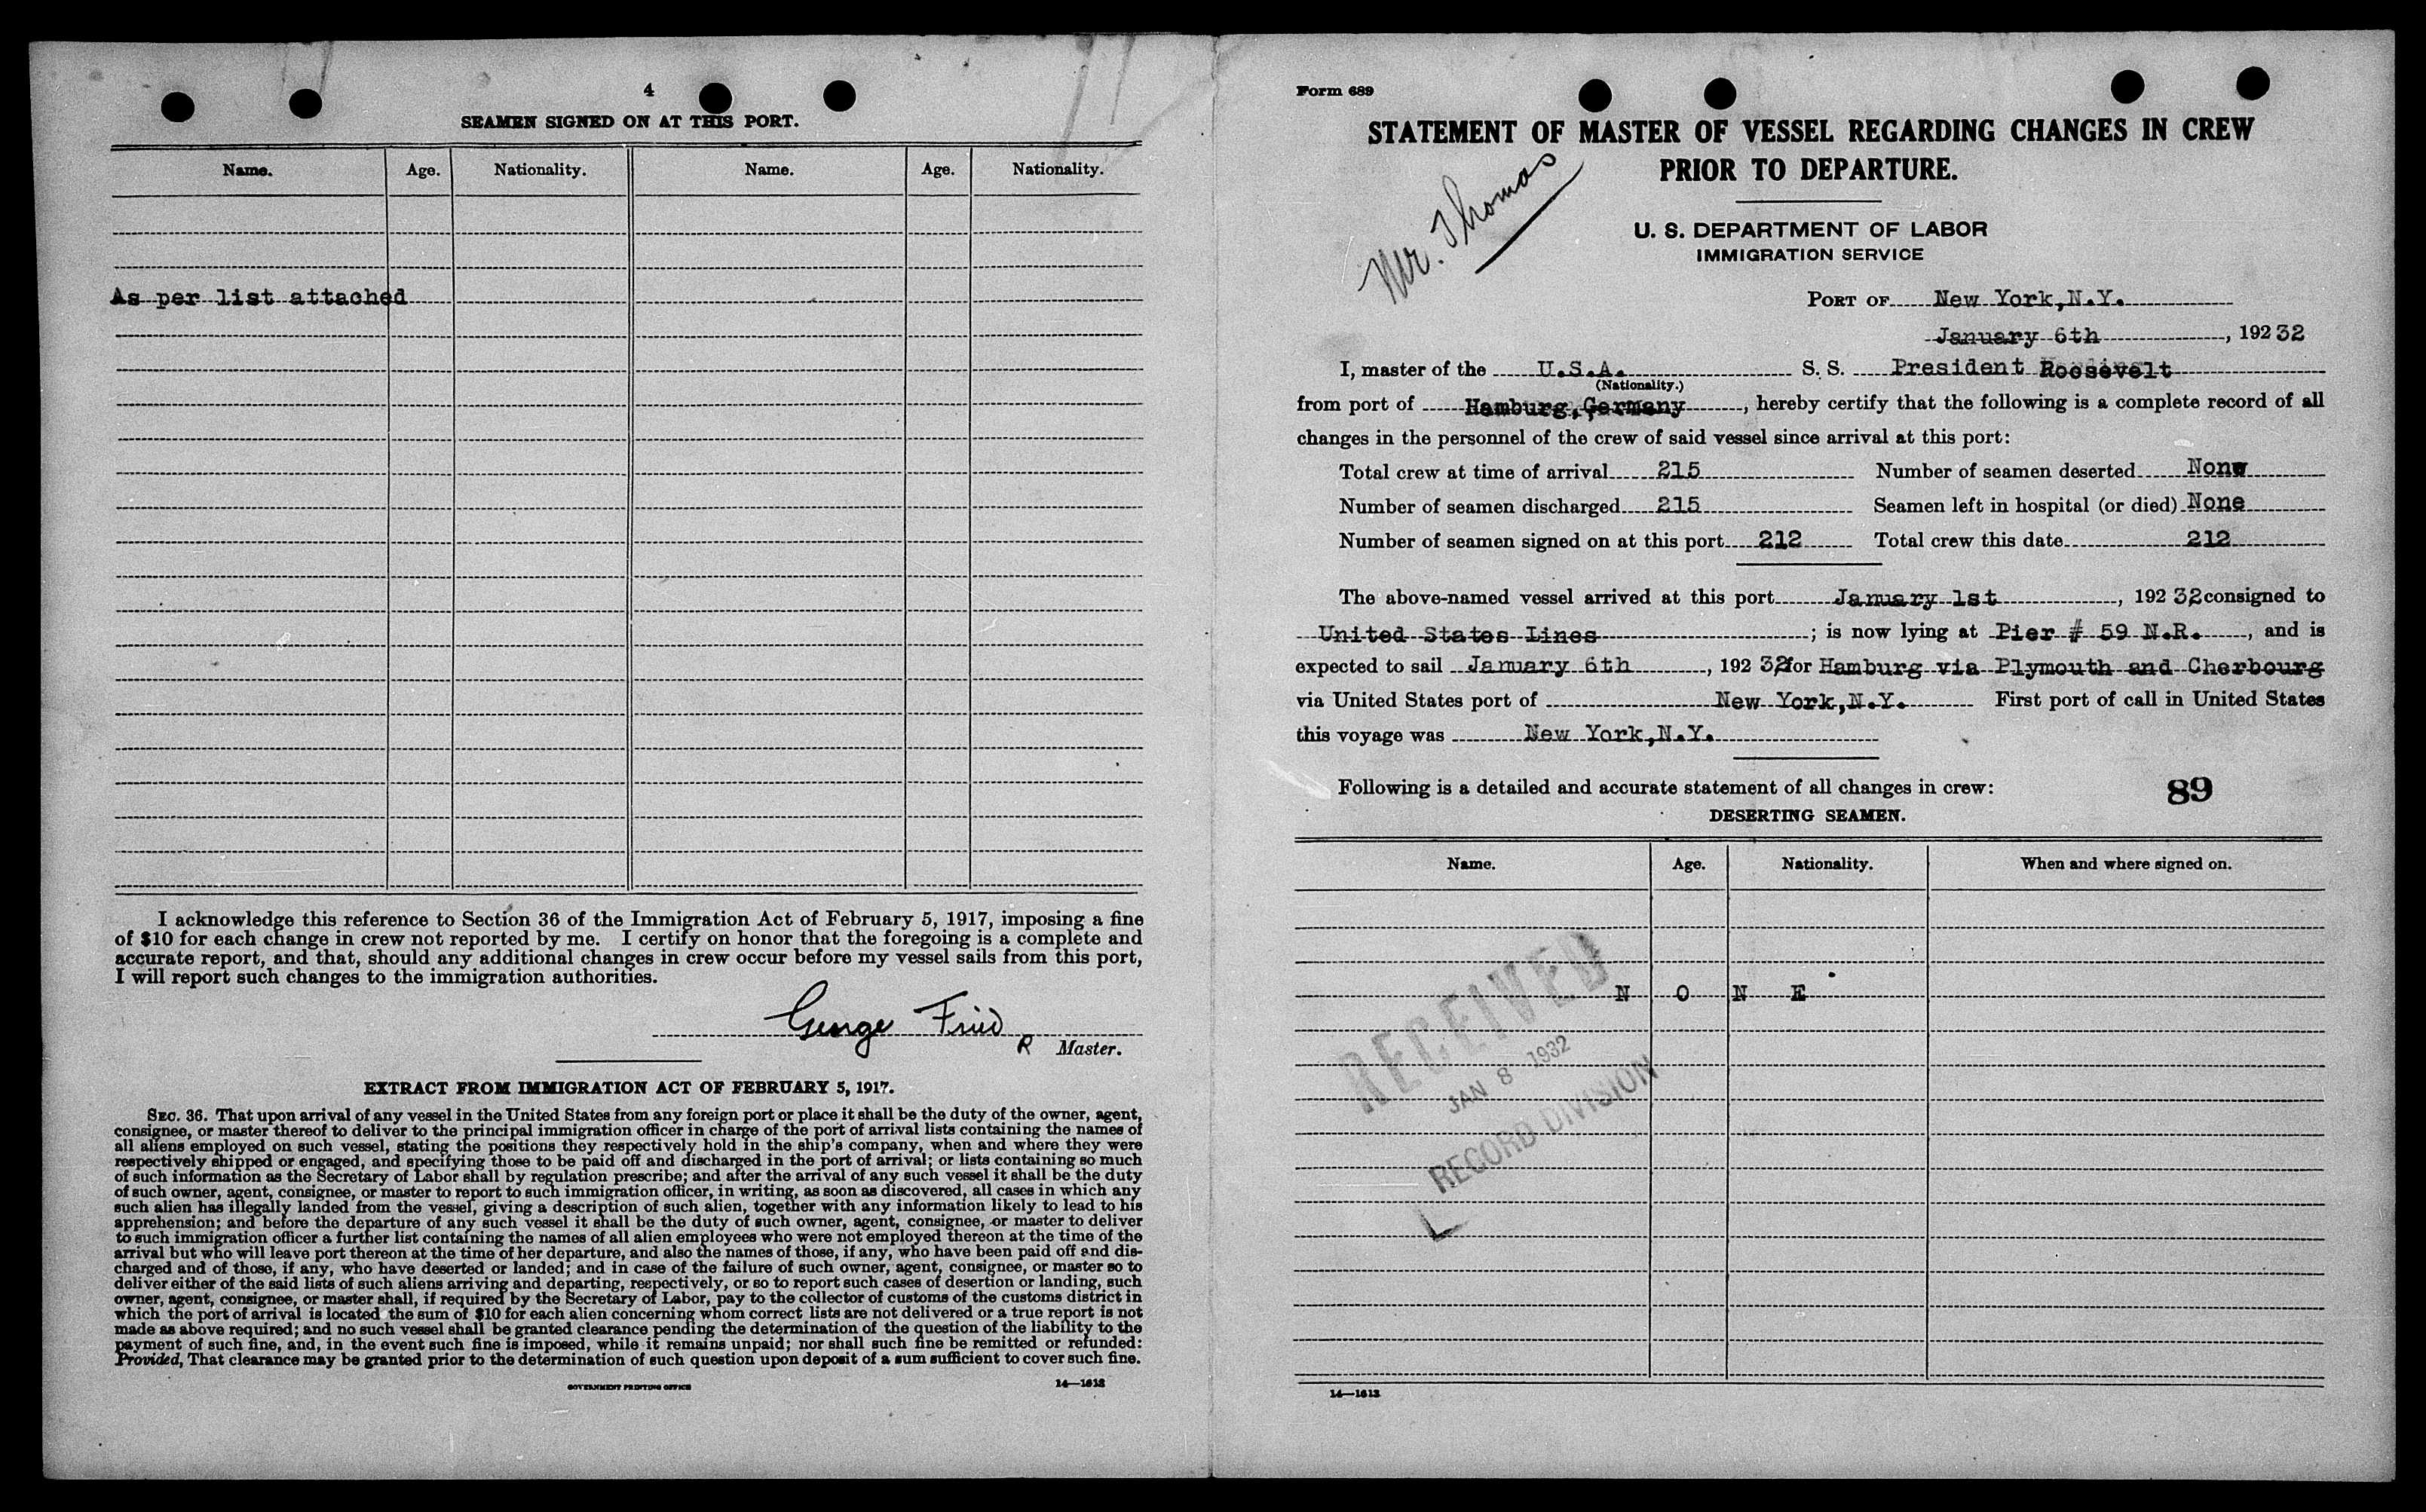 4
SEAMEN SIGNED ON AT THIS PORT.
Name. Age. Nationality. Name. Age. Nationality.
As per list attached
I acknowledge this reference to Section 36 of the Immigration Act of February 5, 1917, imposing a fine
of $10 for each change in crew not reported by me. I certify on honor that the foregoing is a complete and
accurate report, and that, should any additional changes in crew occur before my vessel sails from this port,
I will report such changes to the immigration authorities.
George Fried
R Master.
EXTRACT FROM IMMIGRATION ACT OF FEBRUARY 5, 1917.
SEC. 36. That upon arrival of any vessel in the United States from any foreign port or place it shall be the duty of the owner, agent,
consignee, or master thereof to deliver to the principal immigration officer in charge of the port of arrival lists containing the names of
all aliens employed on such vessel, stating the positions they respectively hold in the ship's company, when and where they were
respectively shipped or engaged, and specifying those to be paid off and discharged in the port of arrival; or lists containing so much
of such information as the Secretary of Labor shall by regulation prescribe; and after the arrival of any such vessel it shall be the duty
of such owner, agent, consignee, or master to report to such immigration officer, in writing, as soon as discovered, all cases in which any
such alien has illegally landed from the vessel, giving a description of such alien, together with any information likely to lead to his
apprehension; and before the departure of any such vessel it shall be the duty of such owner, agent, consignee, or master to deliver
to such immigration officer a further list containing the names of all alien employees who were not employed thereon at the time of the
arrival but who will leave port thereon at the time of her departure, and also the names of those, if any, who have been paid off and dis-
charged and of those, if any, who have deserted or landed; and in case of the failure of such owner, agent, consignee, or master so to
deliver either of the said lists of such aliens arriving and departing, respectively, or so to report such cases of desertion or landing, such
owner, agent, consignee, or master shall, if required by the Secretary of Labor, pay to the collector of customs of the customs district in
which the port of arrival is located the sum of $10 for each alien concerning whom correct lists are not delivered or a true report is not
made as above required; and no such vessel shall be granted clearance pending the determination of the question of the liability to the
payment of such fine, and, in the event such fine is imposed, while it remains unpaid; nor shall such fine be remitted or refunded:
Provided, That clearance may be granted prior to the determination of such question upon deposit of a sum sufficient to cover such fine.
GOVERNMENT PRINTING OFFICE 14—1613
Form 689
STATEMENT OF MASTER OF VESSEL REGARDING CHANGES IN CREW
PRIOR TO DEPARTURE.
Mr. Thomas
U. S. DEPARTMENT OF LABOR
IMMIGRATION SERVICE
PORT OF New York,N.Y.
January 6th, 192 32
I, master of the U.S.A. S. S. President Roosevelt
(Nationality.)
from port of Hamburg,Germany, hereby certify that the following is a complete record of all
changes in the personnel of the crew of said vessel since arrival at this port:
Total crew at time of arrival 215 Number of seamen deserted None
Number of seamen discharged 215 Seamen left in hospital (or died) None
Number of seamen signed on at this port 212 Total crew this date 212
The above-named vessel arrived at this port January 1st, 192 32 consigned to
United States Lines; is now lying at Pier # 59 N.R., and is
expected to sail January 6th, 192 32 for Hamburg via Plymouth and Cherbourg
via United States port of New York,N.Y. First port of call in United States
this voyage was New York,N.Y.
Following is a detailed and accurate statement of all changes in crew: 89
DESERTING SEAMEN.
Name. Age. Nationality. When and where signed on.
N O N E
RECEIVED
JAN 8 1932
RECORD DIVISION
L
14—1613